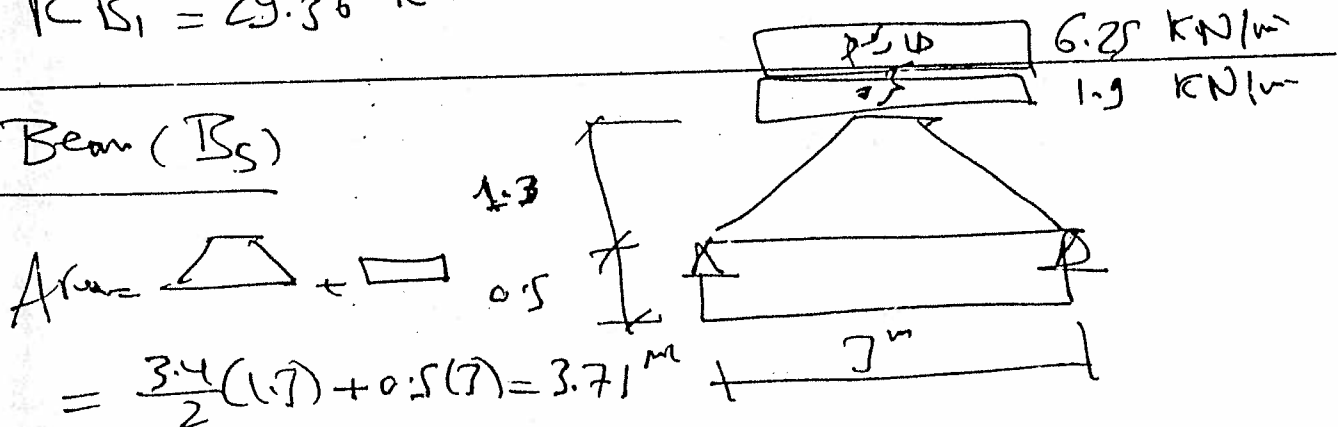 R B₁ = 29.36
6.25 KN/m
1.9 KN/m
Beam (B5)
1.3
Area = +
0.5
3 m
= 3.4/2 (1.3) + 0.5(3) = 3.71 m²